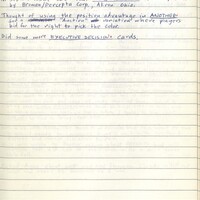 by Berman/Percepta Corp., Akron Ohio.
Thought of using the position advantage in ANOTHER
"Auction" variation where players
bid for the right to pick the color.
Did some more EXECUTIVE DECISION cards.